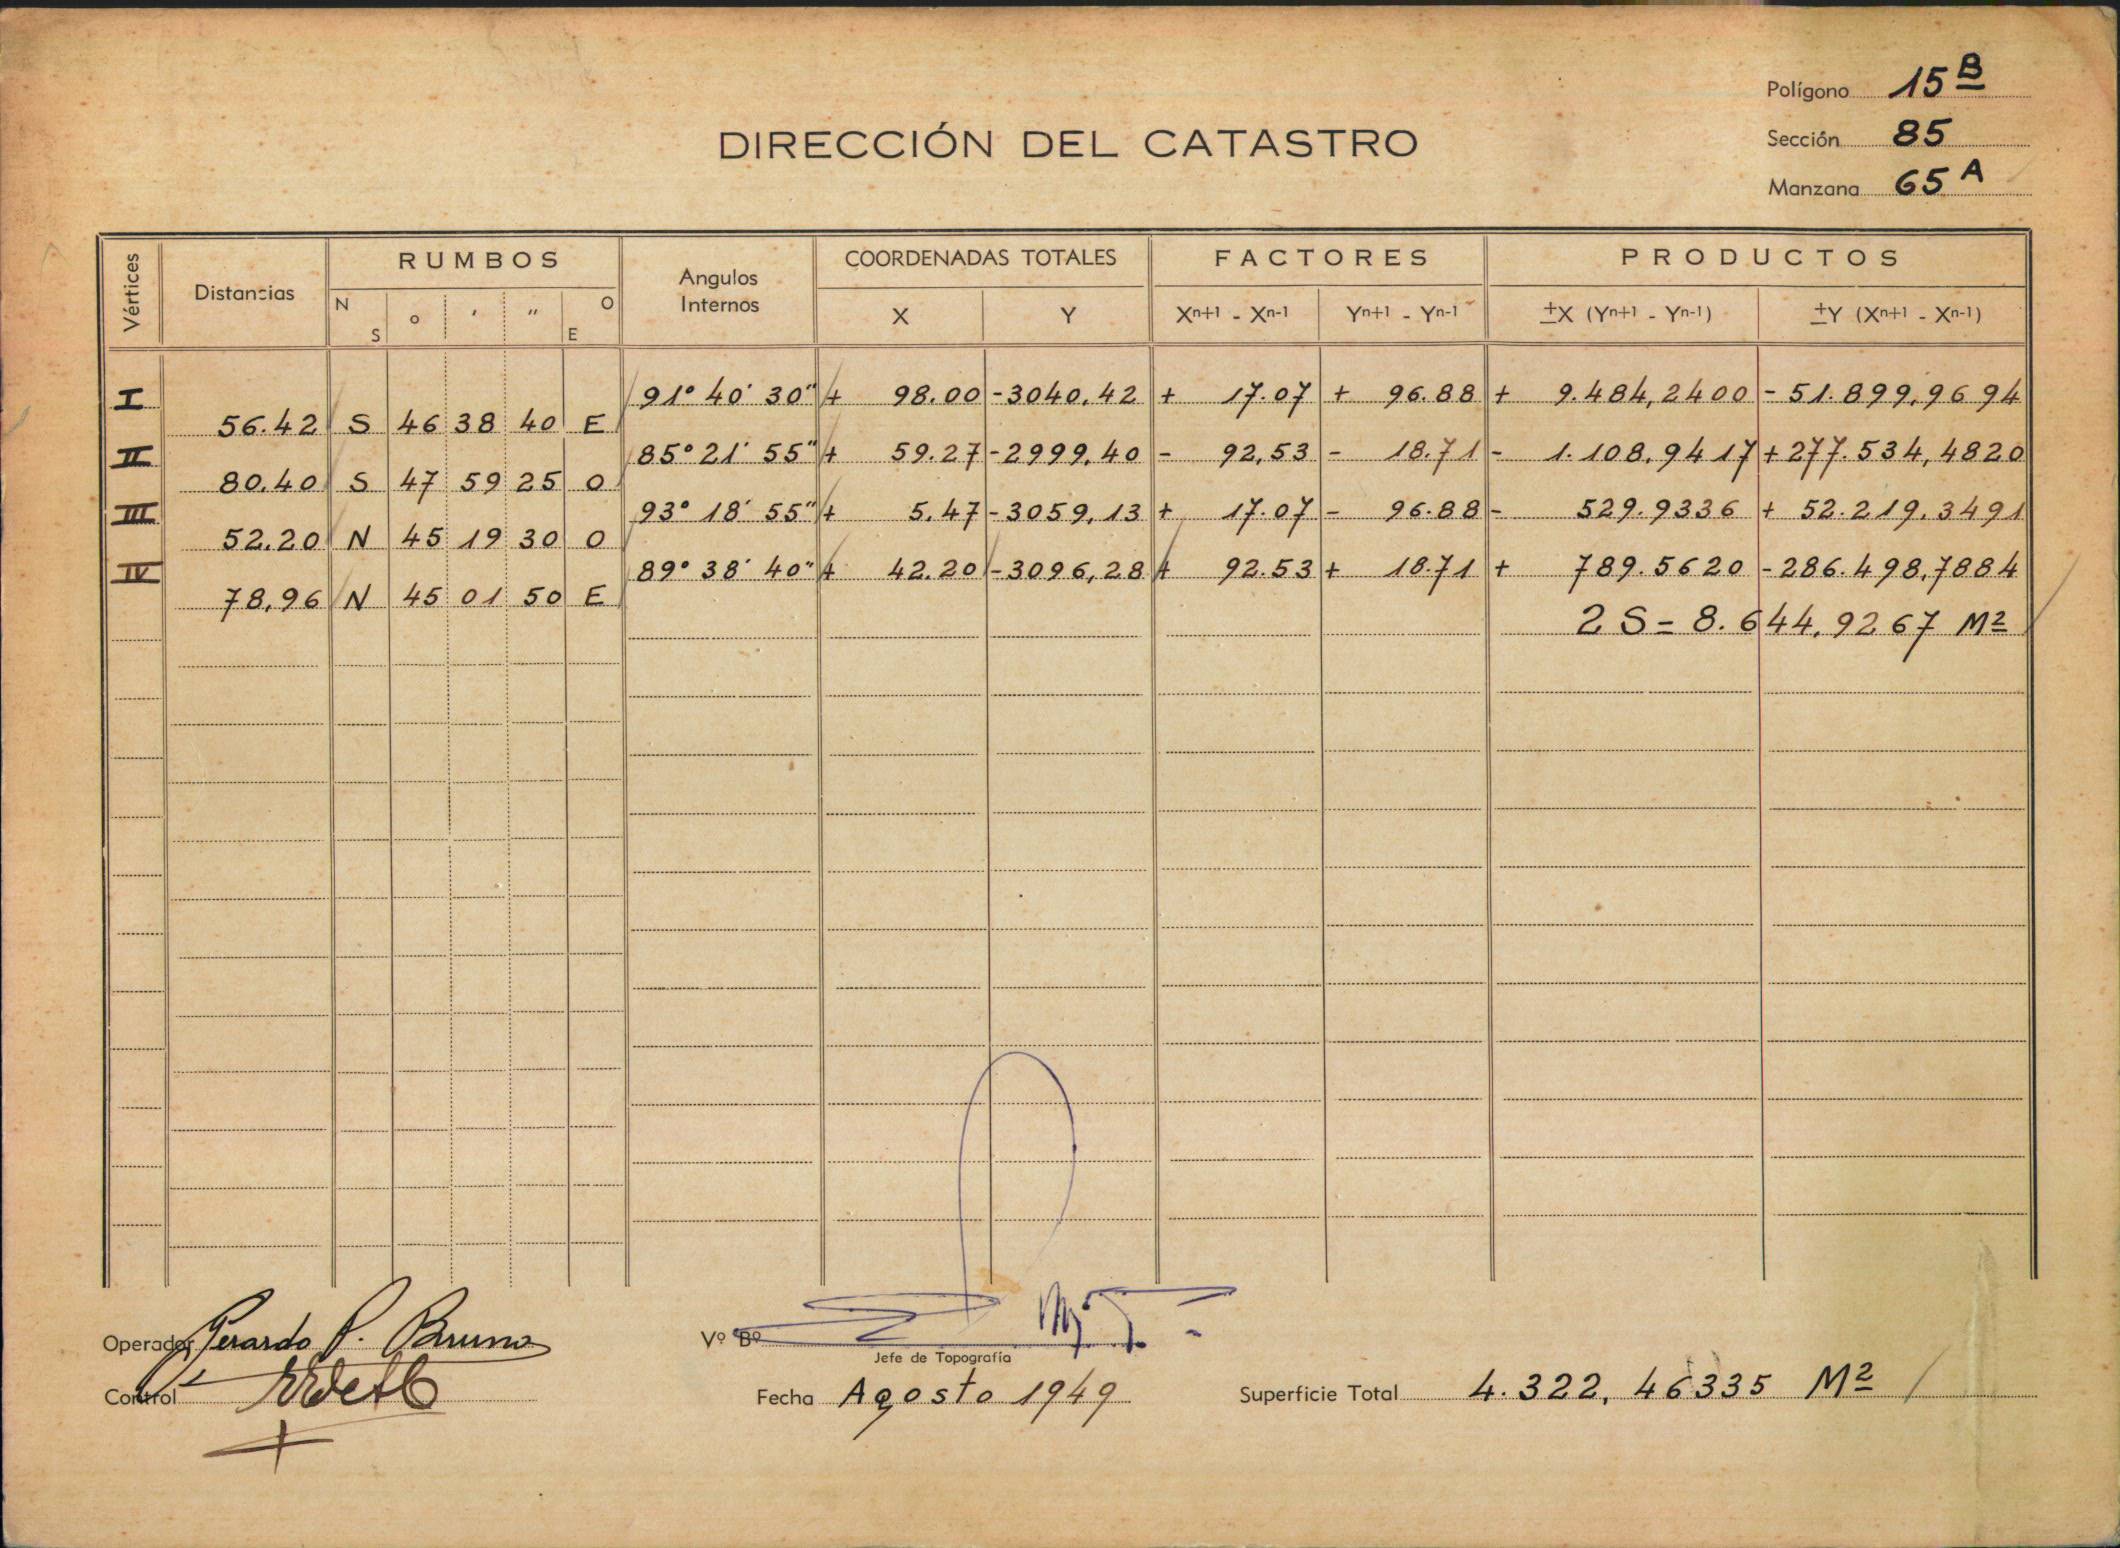 Polígono 15 B
DIRECCIÓN DEL CATASTRO
Sección 85
Manzana 65 A
Vértices Distancias RUMBOS Angulos Internos COORDENADAS TOTALES FACTORES PRODUCTOS
N S o ' " O E X Y Xn+1 - Xn-1 Yn+1 - Yn-1 ±X (Yn+1 - Yn-1) ±Y (Xn+1 - Xn-1)
I 91° 40' 30" + 98.00 -3040,42 + 17.07 + 96.88 + 9.484,2400 - 51.899,9694
56.42 S 46 38 40 E
II 85° 21' 55" + 59.27 -2999,40 - 92,53 - 18.71 - 1.108,9417 + 277.534,4820
80.40 S 47 59 25 O
III 93° 18' 55" + 5.47 -3059,13 + 17.07 - 96.88 - 529.9336 + 52.219.3491
52.20 N 45 19 30 O
IV 89° 38' 40" + 42.20 -3096,28 + 92.53 + 18.71 + 789.5620 -286.498,7884
78,96 N 45 01 50 E
2 S = 8.644,9267 M2
Operador Gerardo P. Bruno Vº Bº
Jefe de Topografía
Control Fecha Agosto 1949 Superficie Total 4.322,46335 M2